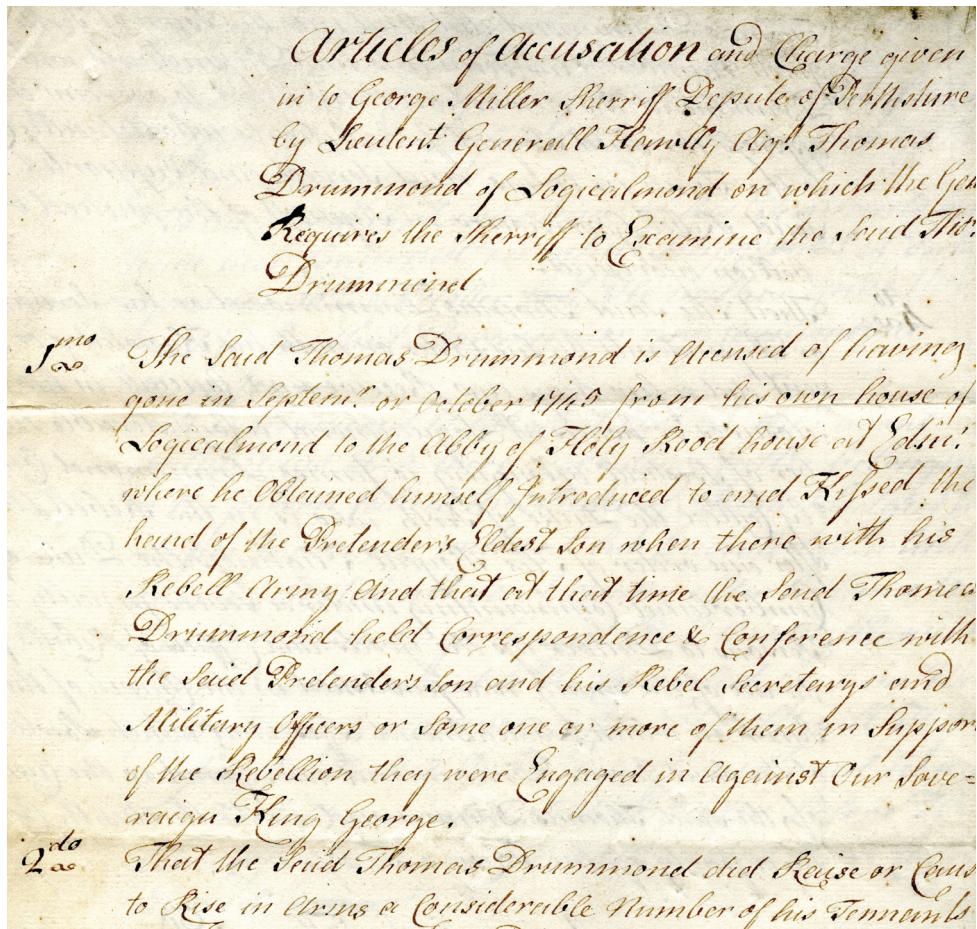 Articles of Accusation and Charge given
in to George Miller Sherriff Depute of Perthshire
by Lieutent. Generall Hawlly Agt. Thomas
Drummond of Logicalmond on which the Gen
Requires the Sherriff to Examine the said Tho:
Drummond
1mo The Said Thomas Drummond is accused of having
gone in Septemr. or October 1745 from his own house of
Logicalmond to the Abby of Holy Rood house at Edinr.
where he Obtained himself Introduced to and Kissed the
hand of the Pretenders Eldest Son when there with his
Rebell Army And that at that time the Said Thomas
Drummond held Correspondence & Conference with
the Said Pretenders Son and his Rebel Secretarys and
Military Officers or Some one or more of them in Suppor
of the Rebellion they were Engaged in Against Our Sove=
raign King George.
2do That the Said Thomas Drummond did Raise or Caus
to Rise in Arms a Considerable Number of his Tennants